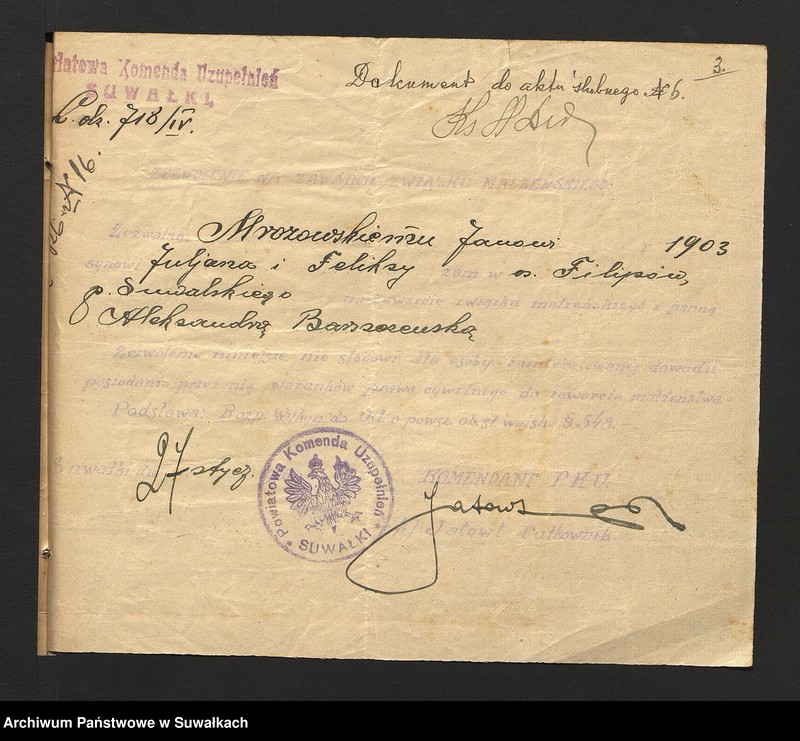 Powiatowa Komenda Uzupełnień
SUWAŁKI
L. dz. 718/IV.
Dokument do aktu ślubnego № 6.
3.
Ks
№ 16.
ZEZWOLENIE NA ZAWARCIE ZWIĄZKU MAŁŻEŃSKIEGO
Zezwalam Mrozowskiemu Janowi r 1903
synowi Juljana i Feliksy zam w os. Filipów,
p. Suwalskiego na zawarcie związku małżeńskiego z panną
Aleksandrą Barszczewską
Zezwolenie niniejsze nie stanowi dla osoby zainteresowanej dowodu
posiadania przez nią warunków prawa cywilnego do zawarcia małżeństwa.-
Podstawa: Rozp. Wykon. do Ust. o powsz. ob. sł. wojsk. § 548. -
Suwałki dn. 27 stycz.
Powiatowa Komenda Uzupełnień
* SUWAŁKI *
KOMENDANT P.K.U.
Jatowt
Jatowt Pułkownik.
Archiwum Państwowe w Suwałkach